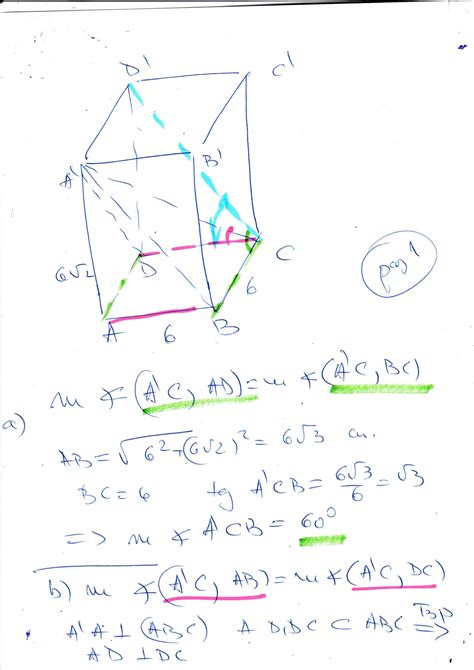 D' C'
A' B'
6√2 D C
A 6 B 6
pag 1
m ∢(A'C, AD) = m ∢(A'C, BC)
a)
AB = √6²+(6√2)² = 6√3 cm.
BC = 6 tg A'CB = 6√3/6 = √3
=> m ∢ A'CB = 60⁰
b) m ∢(A'C, AB) = m ∢(A'C, DC)
A'A ⊥ (ABC) AD, DC ⊂ ABC T3p =>
AD ⊥ DC